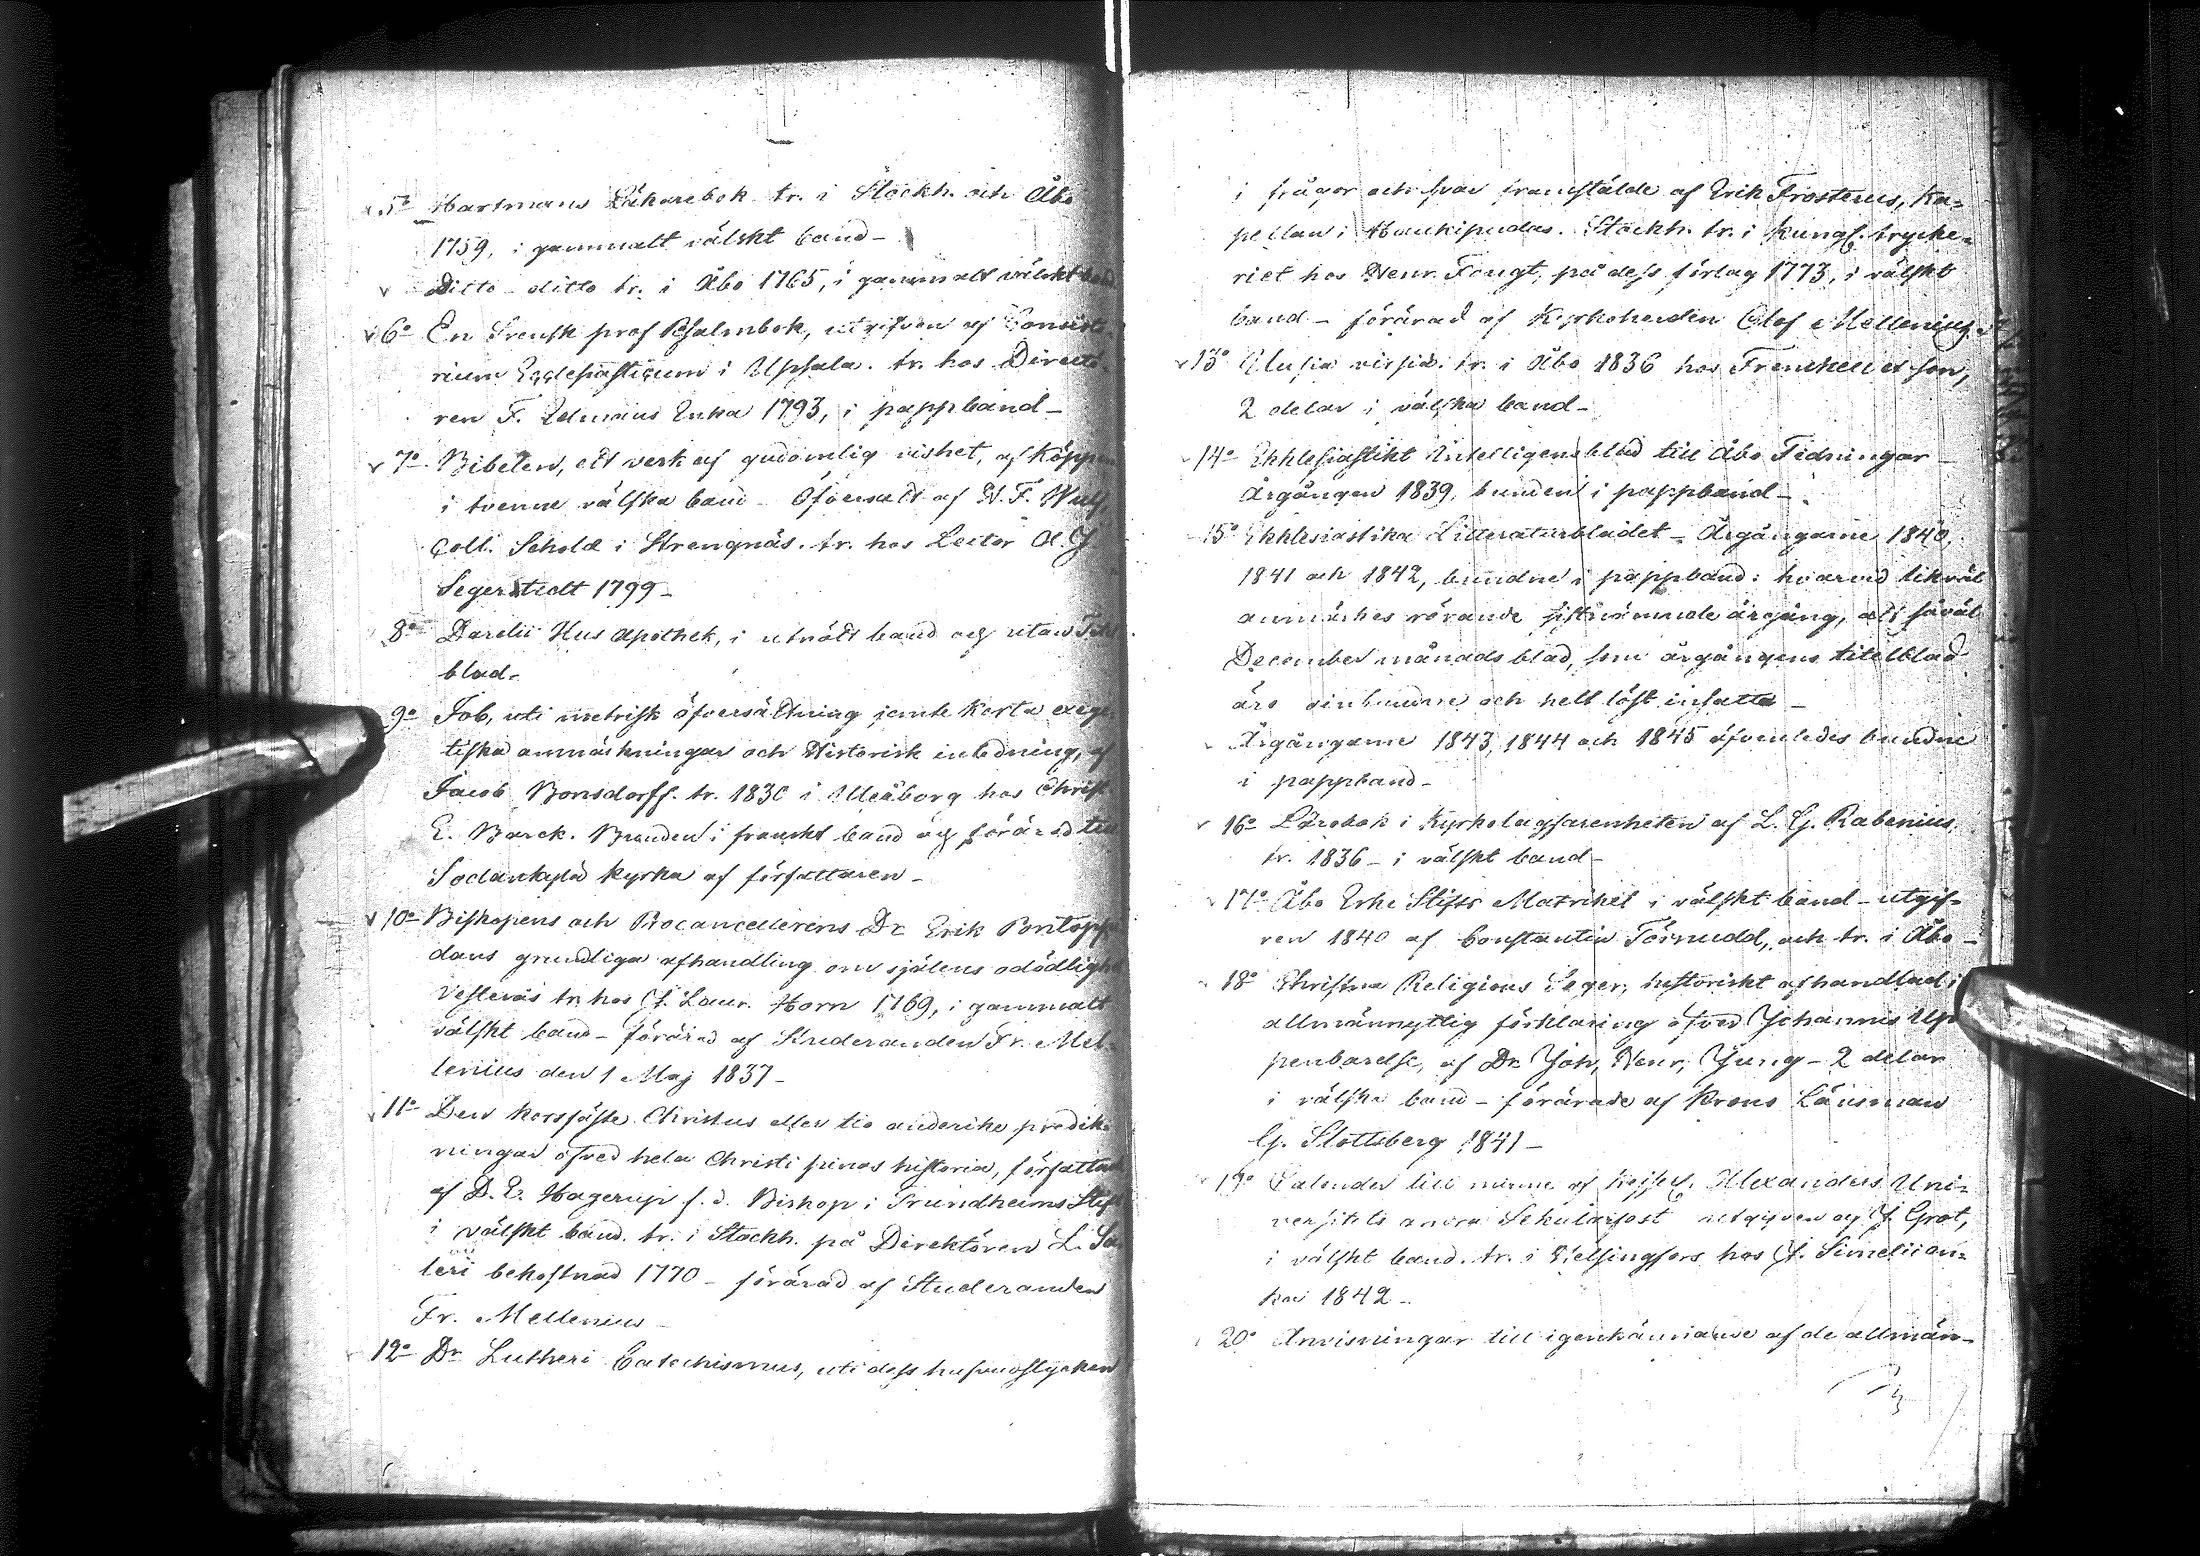 5o Hartmans Läkarebok tr. i Stockh. och Åbo
1759, i gammalt välskt band –
Ditto ditto tr. i Åbo 1765, i gammalt välskt band
6o En Svensk prof Psalmbok, utgifven af Consisto
rium Ecclesiasticum i Upsala. tr. hos Directö
ren F. Edmans Enka 1793, i pappband –
7o Bibelen, ett verk af gudomlig vishet, af Köppen
i tvenne välska band – Öfversatt af N. F.
Coll. Schol. i Strengnäs. tr. hos Lector A. J.
Segerstedt 1799 –
8o Darelii Hus Apothek, i utnött band och utan
blad.
9o Job, uti metrisk öfversättning jemte korta exege
tiska anmärkningar och Historisk inledning, af
Jacob Bonsdorff. tr. 1830 i Uleåborg hos Christ.
E. Barck. Bunden i franskt band och förärad till
Sodankylä kyrka af författaren –
10o Biskopens och Procancellerens Dr Erik Pontopp
dans grundliga afhandling om själens odödlighet
Vesterås tr. hos J. Laur. Horn 1769, i gammalt
välskt band – förärad af Studeranden Fr. Mel-
lenius den 1 Maj 1837 –
11o Den korsfäste Christus eller tio anderike predik-
ningar öfver hela Christi pinos historia, författade
af D. E. Hagerup f. d. Biskop i Trundheims Stift
i välskt band. tr. i Stockh. på Direktören L. Sal
lerii bekostnad 1770 – förärad af Studeranden
Fr. Mellenius –
12o Dr Lutheri Catechismus, uti dess hufvudstycken
i frågor och svar framstälde af Erik Frosterus, Ka-
pellan i Haukipudas. Stockh. tr. i Kungl. trycke-
riet hos Henr. Fougt, på dess förlag 1773, i välskt
band – förärad af Kyrkoherden Olof Mellenius.
13o Uusia virsiä. tr. i Åbo 1836 hos Frenckell et son,
2 delar i välska band –
14o Ekklesiastikt Intelligensblad till Åbo Tidningar
Årgången 1839, bunden i pappband –
15o Ekklesiastika Litteraturbladet – Årgångarne 1840,
1841 och 1842, bundne i pappband: hvarvid likväl
anmärkes rörande sistnämnde årgång, att såväl
December månads blad, som årgångens titelblad
äro oinbundne och helt löst insatta –
Årgångarne 1843, 1844 och 1845 äfvenledes bundne
i pappband –
16o Lärobok i Kyrkolagfarenheten af L. G. Rabenius,
tr. 1836 – i välskt band –
17o Åbo Erke Stifts Matrikel i välskt band – utgif-
ven 1840 af Constantin Törnudd, och tr. i Åbo –
18o Christna Religions Seger, historiskt afhandlad i
allmännyttig förklaring öfver Johannis Up
penbarelse, af Dr Joh. Henr. Jung – 2 delar
i välska band – förärade af Krono Länsman
G. Slottsberg 1841 –
19o Calender till minne af Kejserl. Alexanders Uni-
versitets andra Sekularfest utgifven af J. Grot,
i välskt band. tr. i Helsingfors hos J. Simelii en-
ka 1842 –
20o Anvisningar till igenkännande af de allmän-